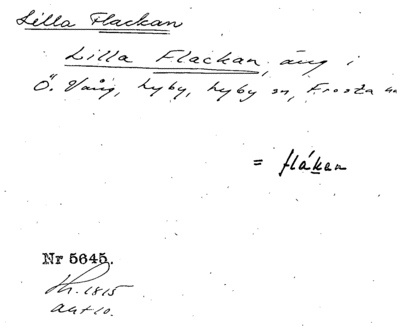 Lilla Flackan
Lilla Flackan, äng i
Ö. Vång, Hyby, Hyby sn,
= flákan
Nr 5645.
1815
akt 10.